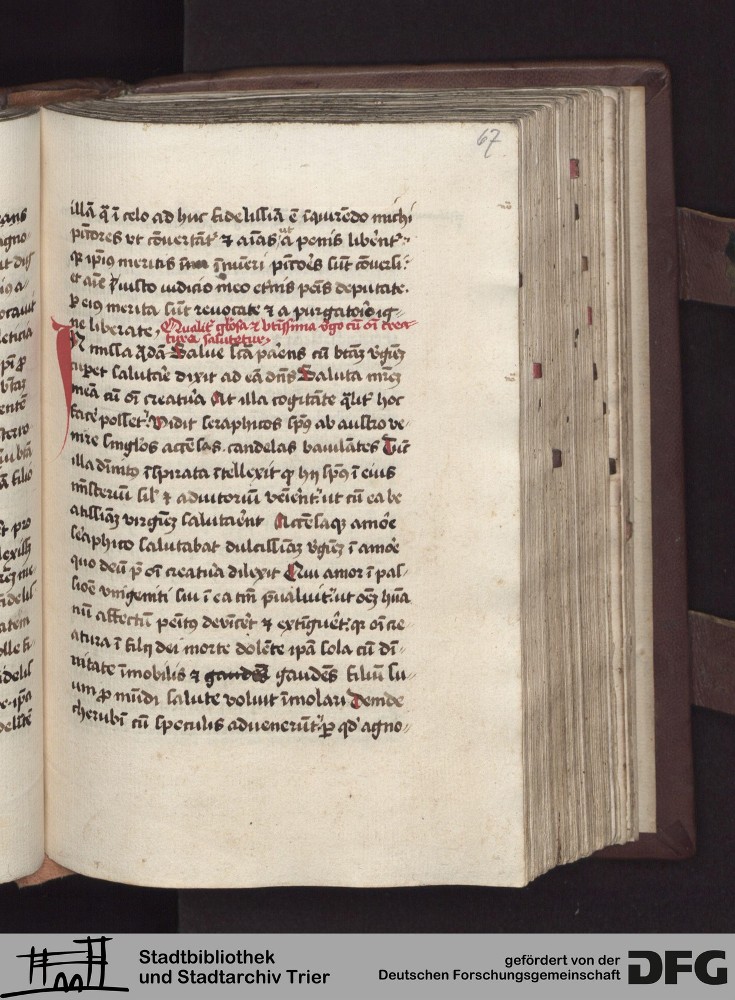 67
illā q̄ ī celo ad huc fidelissīa ē īquirēdo michi
pc̄tores ut cōvertāt᷑ ⁊ aīas a penis liberēt᷑
ut
q ip̄iꝰ meritis īnu̅eri pc̄toēs sūt cōversi:
iusto iudicio meo et̄nis penis deputate.
ꝑ eiꝰ merita sūt revocate ⁊ a purgatoīo ig-
ne liberate, Qualit᷑ gl̄osa ⁊ btissima v̄go cū oī crea
tura salutetur,
In missa q̄dā Salve sc̄a parēs cū btāꝫ v̄gīeꝫ
cuperet salutāe dixit ad eā dn̄s Saluta mr̄eꝫ
meā cū oī creatura At illa cogitāte q̄lit᷑ hoc
facē posset. Vidit seraphicos sp̄ꝰ ab austro ve-
nire singlos accēsas candelas baiulātes Tūc
illa dīnitꝰ īspirata ītellexit ꝙ hij sp̄ꝰ ī eius
mīsteriū sil̄ ⁊ adiutoriū venerēt᷑ ut cū ea be
atissīaꝫ virgīeꝫ salutarēt Accēsaqꝫ amoē
seraphico salutabat dulcissīaꝫ v̄gīeꝫ ī amoē
quo deū p̄ oī creatura dilexit Qui amor ī pas-
sioē unigeniti sui ī ea tm̄ p̄valuit ut oēꝫ hūa
nū affectū penitꝰ devīcēt ⁊ extīguēt ꝙ oī cre-
atura ī filij dei morte dolēte ip̄a sola cū dī-
nitate īmobilis ⁊ gaudēs gaudēs filiū su-
um ꝓ mūdi salute voluit īmolari Deinde
cherubī cū speculis advenerūt ꝑ qd̄ agno-
Stadtbibliothek
und Stadtarchiv Trier
gefördert von der
Deutschen Forschungsgemeinschaft
DFG